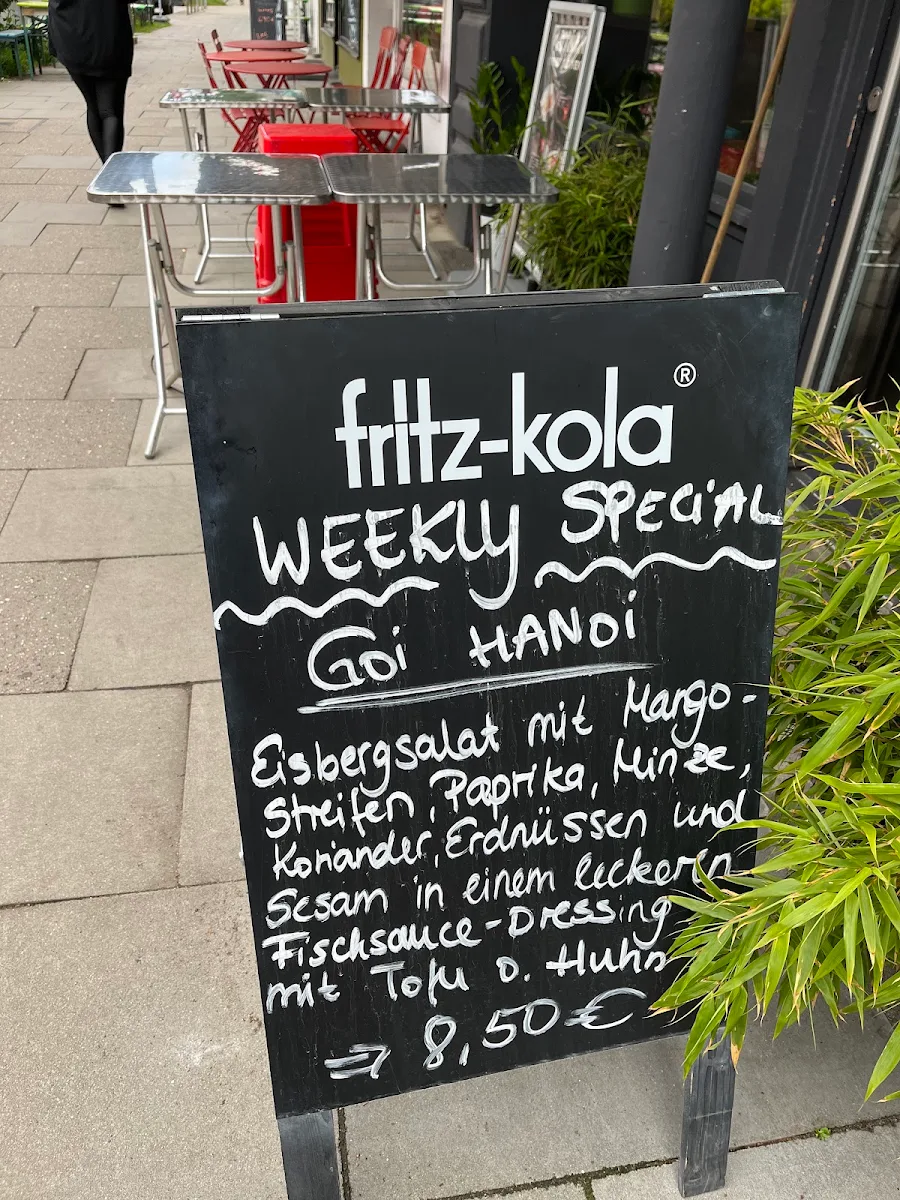 fritz-kola®
WEEKLY SPECiAL
Goi HANOi
Eisbergsalat mit Mango-
Streifen, Paprika, Minze,
Koriander, Erdnüssen und
Sesam in einem leckeren
Fischsauce-Dressing
mit Tofu o. Huhn
⇒ 8,50 €